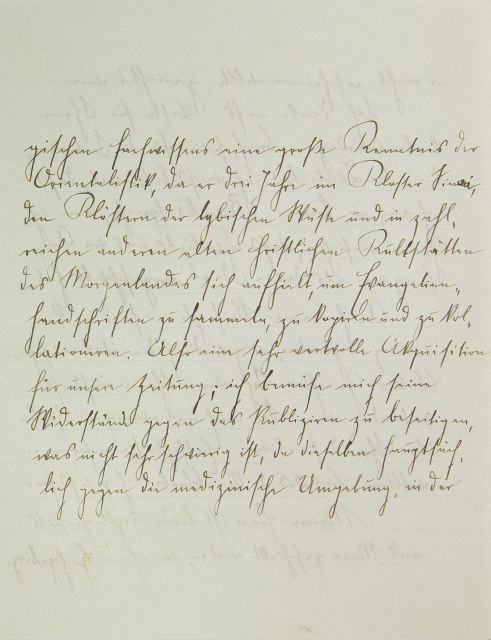 gischen Fachwissens eine große Kenntnis der
Orientalistik, da er drei Jahre im Kloster Sinai,
den Klöstern der lybischen Wüste und in zahl-
reichen anderen alten christlichen Kultstätten
des Morgenlandes sich aufhielt, um Evangelien-
handschriften zu sammeln, zu kopieren und zu kol-
lationiren. Also eine sehr wertvolle Akquisition
für unsere Zeitung; ich bemühe mich seine
Widerstände gegen das Publiziren zu beseitigen,
was nicht sehr schwierig ist, da dieselben hauptsäch-
lich gegen die medizinische Umgebung, in der